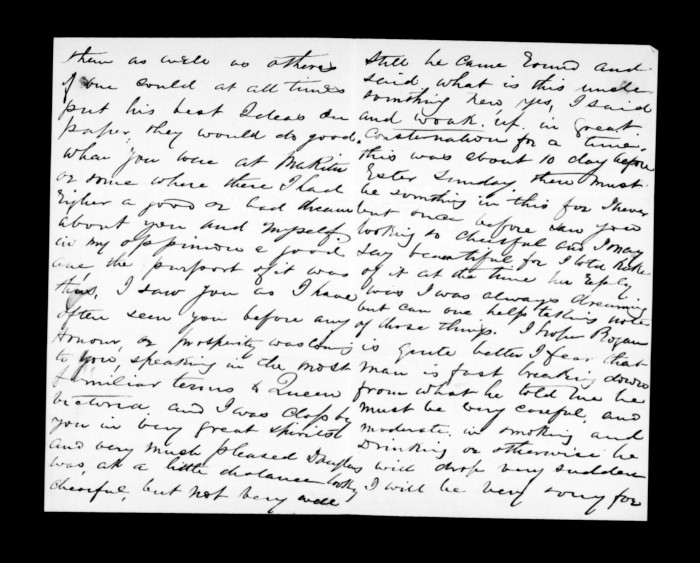 them as well as others
if one could at all times
put his best Ideas on
paper, they would do good.
when you were at Makitu
or some where there I had
Eigher a good or bad dream
about you and myself,
in my oppinion a good
one, the purport of it was
this, I saw you as I have
often seen you before any
Honour, or prosperity was coming
to you, speaking in the most
familiar terms to Queen
Victoria, and I was close by
you in very great spirits
and very much pleased Douglas
was, at a little distance looking
cheerful, but not very well
still he came round and
said, what is this uncle
something new, yes, I said
and woak. up, in great
Consternation for a time,
this was about 10 day before
Ester Sunday, there must
be somthing in this for I never
but once before saw you
looking so cheerful and I may
say beautiful for I told
of it at the time her Reply
was I was always dreaming
but can one help taking notes
of those things. I hope Rogan
is quite better I fear that
man is fast breaking down
from what he told me he
must be very careful, and
moderate. in smoking and
Drinking or otherwise he
will drop very sudden
I will be very sorry for